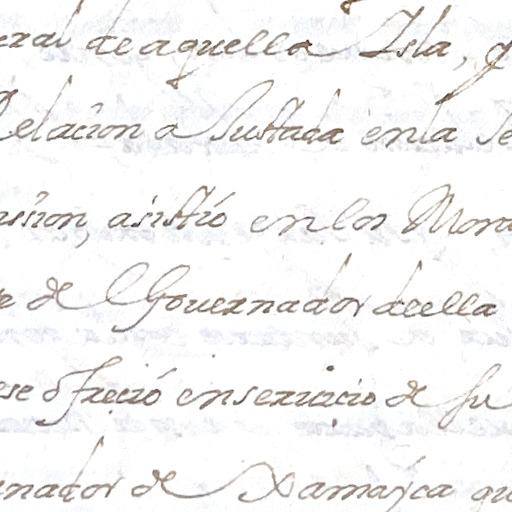 eral de aquella Isla, q
Relacion a Justada en la Se
ission, asistió en los Mora
e de el Governador de ella
ese ofreció en servicio de su
rnador de Xamayca qu